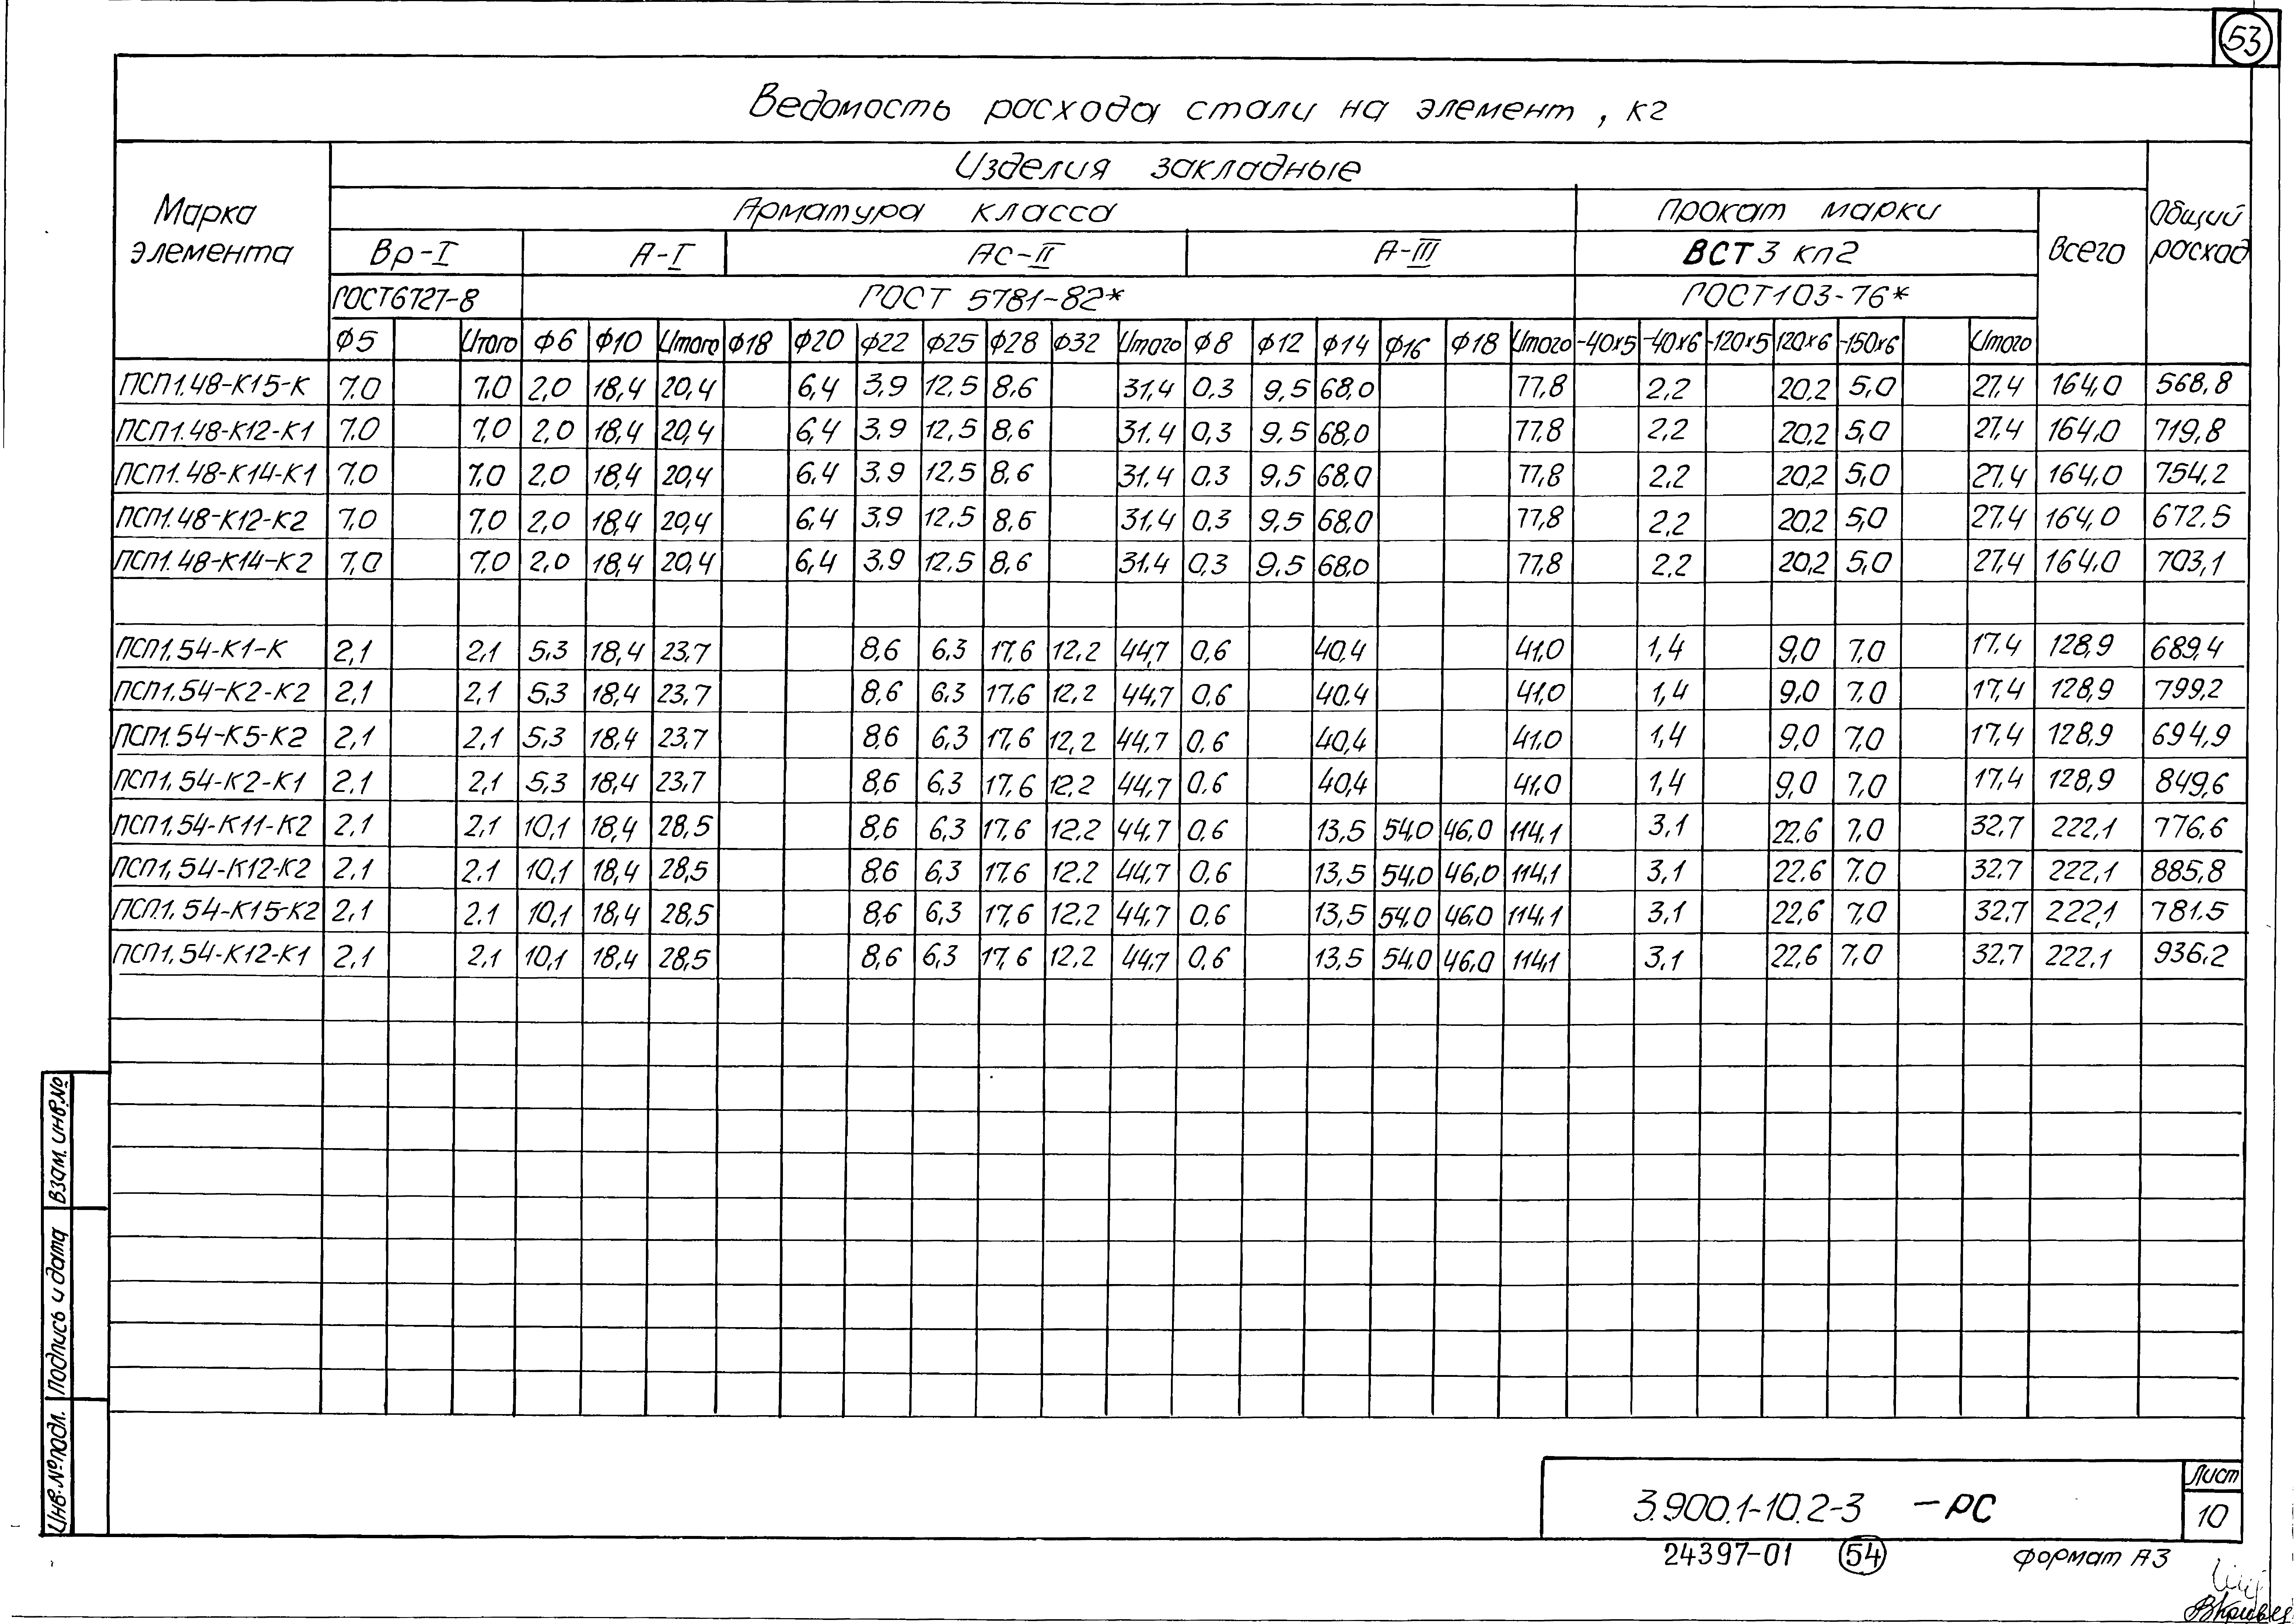 53
Ведомость расхода стали на элемент, кг
Марка элемента
Изделия закладные
Общий расход
Арматура класса
Прокат марки
Всего
Вр-I А-I Ас-II А-III ВСТ3 кп2
ГОСТ6727-8 ГОСТ 5781-82* ГОСТ103-76*
Ф5 Итого Ф6 Ф10 Итого Ф18 Ф20 Ф22 Ф25 Ф28 Ф32 Итого Ф8 Ф12 Ф14 Ф16 Ф18 Итого -40х5 -40х6 -120х5 120х6 -150х6 Итого
ПСП1.48-К15-К 7.0 7,0 2,0 18,4 20,4 6,4 3,9 12,5 8,6 31,4 0,3 9,5 68,0 77,8 2,2 20,2 5,0 27,4 164,0 568,8
ПСП1.48-К12-К1 7.0 7,0 2,0 18,4 20,4 6,4 3,9 12,5 8,6 31.4 0,3 9,5 68,0 77,8 2,2 20,2 5,0 27,4 164,0 719,8
ПСП1.48-К14-К1 7,0 7,0 2,0 18,4 20,4 6,4 3,9 12,5 8,6 31,4 0,3 9,5 68,0 77,8 2,2 20,2 5,0 27,4 164,0 754,2
ПСП1.48-К12-К2 7,0 7,0 2,0 18,4 20,4 6,4 3,9 12,5 8,6 31,4 0,3 9,5 68,0 77,8 2,2 20,2 5,0 27,4 164,0 672,5
ПСП1.48-К14-К2 7,0 7,0 2,0 18,4 20,4 6,4 3,9 12,5 8,6 31.4 0,3 9,5 68,0 77,8 2,2 20,2 5,0 27,4 164,0 703,1
ПСП1.54-К1-К 2,1 2,1 5,3 18,4 23,7 8,6 6,3 17,6 12,2 44,7 0,6 40,4 41,0 1,4 9,0 7,0 17,4 128,9 689,4
ПСП1.54-К2-К2 2,1 2,1 5,3 18,4 23,7 8,6 6,3 17,6 12,2 44,7 0,6 40,4 41,0 1,4 9,0 7,0 17,4 128,9 799,2
ПСП1.54-К5-К2 2,1 2,1 5,3 18,4 23,7 8,6 6,3 17,6 12,2 44,7 0,6 40,4 41,0 1,4 9,0 7,0 17,4 128,9 694,9
ПСП1.54-К2-К1 2,1 2,1 5,3 18,4 23,7 8,6 6,3 17,6 12,2 44,7 0,6 40,4 41,0 1,4 9,0 7,0 17,4 128,9 849,6
ПСП1.54-К11-К2 2,1 2,1 10,1 18,4 28,5 8,6 6,3 17,6 12,2 44,7 0,6 13,5 54,0 46,0 114,1 3,1 22,6 7,0 32,7 222,1 776,6
ПСП1.54-К12-К2 2,1 2,1 10,1 18,4 28,5 8,6 6,3 17,6 12,2 44,7 0,6 13,5 54,0 46,0 114,1 3,1 22,6 7,0 32,7 222,1 885,8
ПСП1.54-К15-К2 2,1 2,1 10,1 18,4 28,5 8,6 6,3 17,6 12,2 44,7 0,6 13,5 54,0 46,0 114,1 3,1 22,6 7,0 32,7 222,1 781,5
ПСП1.54-К12-К1 2,1 2,1 10,1 18,4 28,5 8,6 6,3 17,6 12,2 44,7 0,6 13,5 54,0 46,0 114,1 3,1 22,6 7,0 32,7 222,1 936,2
Взам. инв.№
Подпись и дата
Инв.№подл.
3.900.1-10.2-3 -РС
Лист
10
24397-01 54 Формат А3